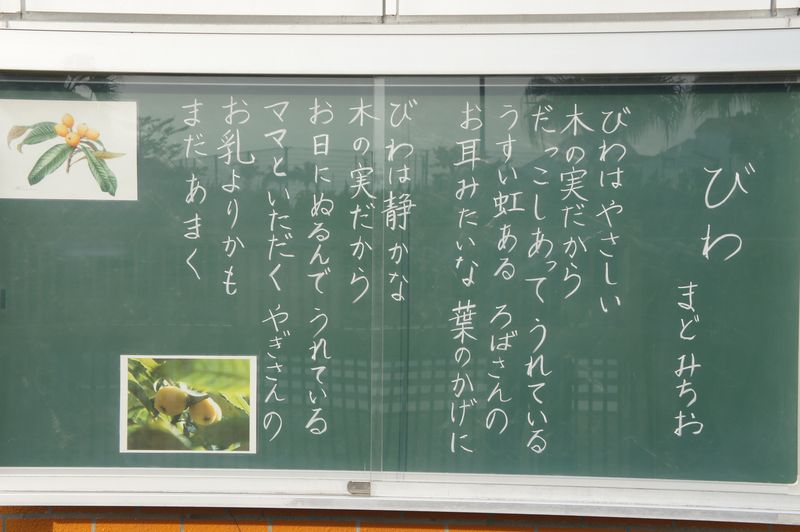 びわ
まどみちお
びわはやさしい
木の実だから
だっこしあって うれている
うすい虹ある ろばさんの
お耳みたいな 葉のかげに
びわは静かな
木の実だから
お日にぬるんで うれている
ママといただく やぎさんの
お乳よりかも
まだあまく